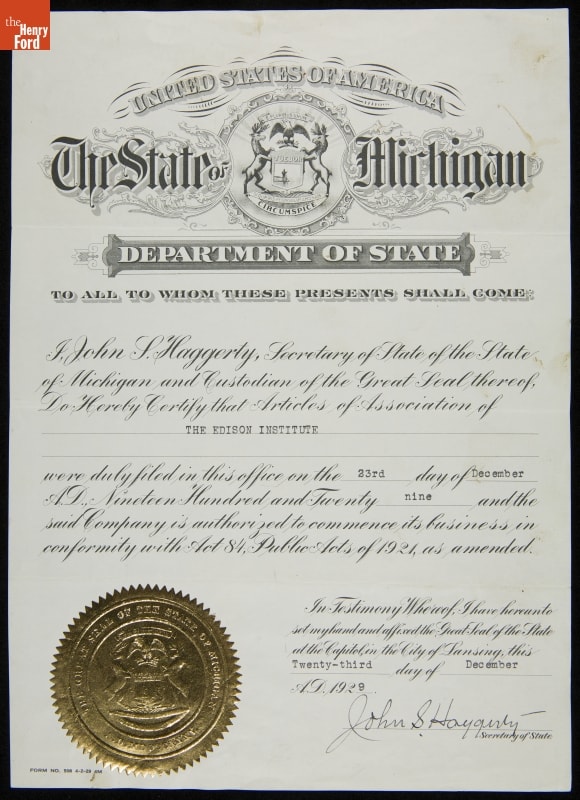 the
Henry
Ford
UNITED STATES OF AMERICA
The State of Michigan
TUEBOR
CIRCUMSPICE
DEPARTMENT OF STATE
TO ALL TO WHOM THESE PRESENTS SHALL COME:
I, John S. Haggerty, Secretary of State of the State
of Michigan and Custodian of the Great Seal thereof,
Do Hereby Certify that Articles of Association of
THE EDISON INSTITUTE
were duly filed in this office on the 23rd day of December
A.D., Nineteen Hundred and Twenty nine and the
said Company is authorized to commence its business in
conformity with Act 84, Public Acts of 1921, as amended.
In Testimony Whereof, I have hereunto
set my hand and affixed the Great Seal of the State
at the Capitol, in the City of Lansing, this
Twenty-third day of December
A.D. 1929
John S. Haggerty
Secretary of State.
SEAL OF THE STATE OF MICHIGAN
FORM NO.